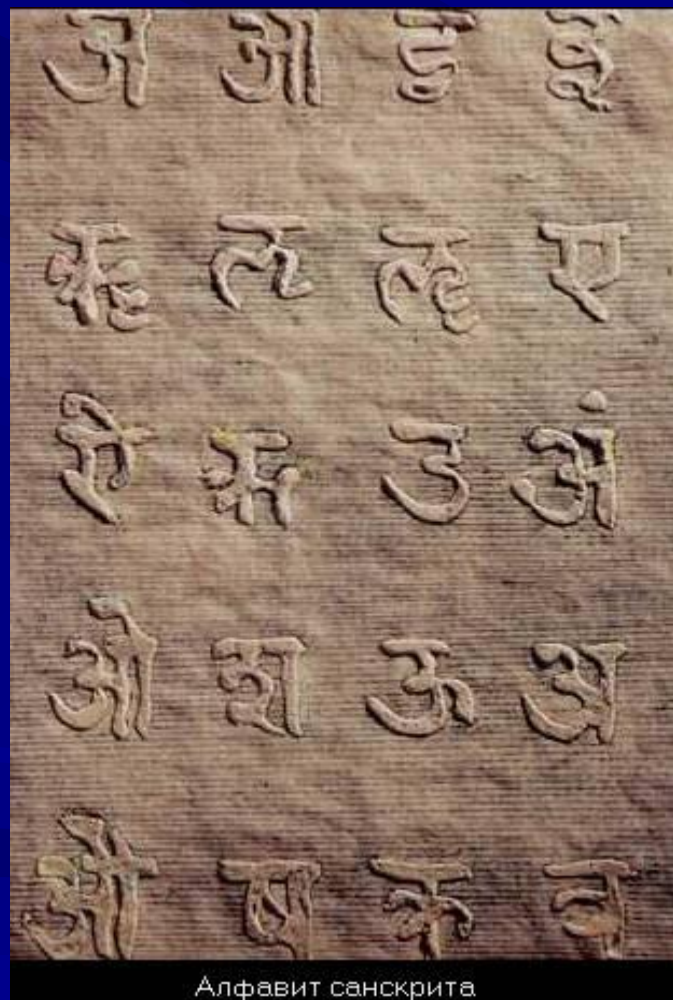 अ आ इ ई
ॠ ऌ ॡ ए
ऐ ऋ उ अं
ओ श ऊ अ
औ ष क
Алфавит санскрита